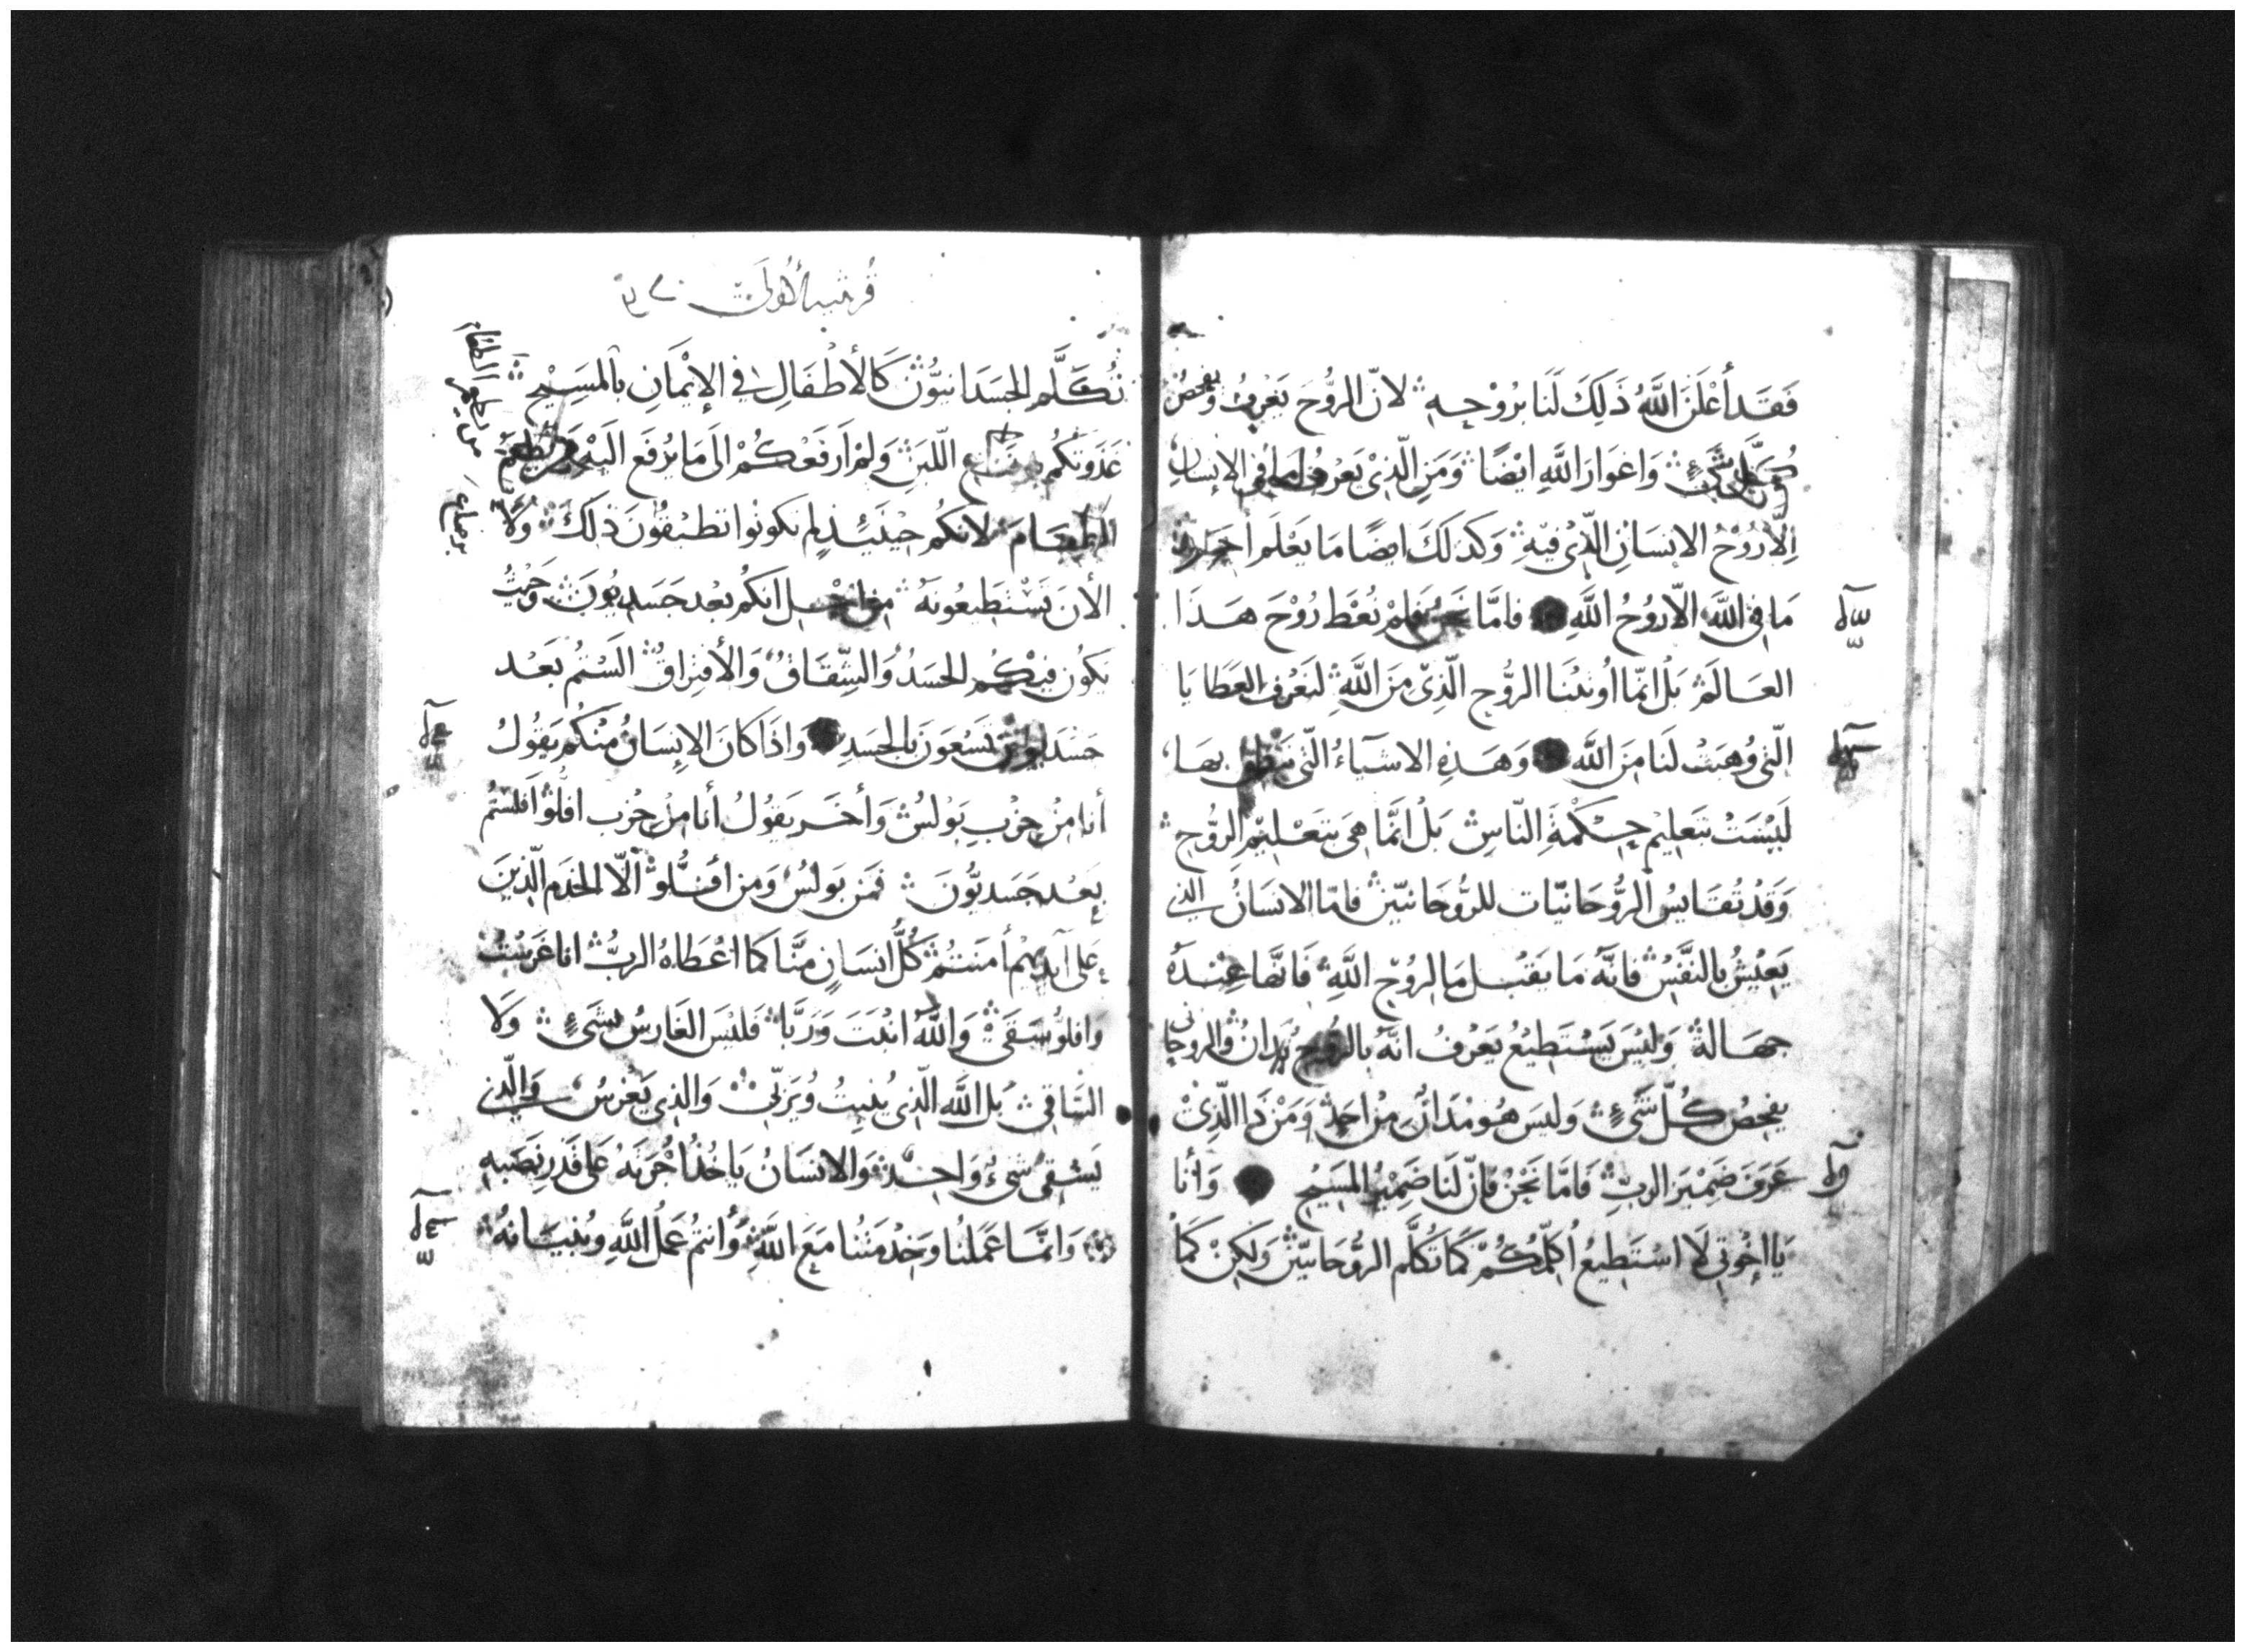 فَقَد أَعْلَنَ اللَّهُ ذَلِكَ لَنَا بُرُوْحِهِ لانّ الرُّوحَ يَعْرِفُ وَيفحصُ
كُلَّ شَيْءٍ وَاغوَارَ اللَّهِ ايْضًا وَمَنِ الّذِيْ يَعْرِفُ مَا فِي الإِنسَانِ
اِلّا رُوْحُ الانسَانِ الّذِيْ فيْهِ وَكَذَلَكَ ايضًا مَا يَعْلَم احَد
مَا فِي اللَّهِ الّا رُوُحُ اللَّهِ فامَّا نَحْنُ فَلمْ نُعْطَ رُوْحَ هَذَا
العَالَمْ بَلْ انّمَا اُوتيْنَا الرُّوْحِ الّذِيْ مِنَ اللَّهِ لنَعْرِفَ العَطَايَا
الّتِي وُهِبَتْ لَنَا مِنَ اللَّه وَهَذِهِ الاشيَآءُ الّتِي نَنطِق بِهَا
لَيْسَتْ بتَعلِيْم حِكْمَةِ النّاسِ بَلْ انَّمَا هِيَ بتَعْلِيْمِ الرُّوْحِ
وَقَدْ تُقَايِسُ الرُّوْحَانيّات للرُّوحَانيّين فامّا الانسَانُ الذي
يَعِيْشُ بالنَّفْسِ فانّهُ مَا يَقبُل مَا لرُوْحِ اللَّهِ فَانَّهَا عِنْدَهُ
جهَالةٌ وَليْسَ يَسْتَطيْعُ يَعْرفُ انّهُ بالرُّوْحِ يُدَانُ والروحاني
يفحصُ كُلّ شَيْءٍ وَليسَ هُو مْدَانٌ مِنْ احَدٍ وَمَنْ ذَا الّذِيْ
عَرَفَ ضَمِيْرَ الربّ فَامَّا نَحْنُ فَانّ لَنَا ضَمِيْرُ المَسِيْحِ وَأنا
يَا اخْوتي لَا اسْتَطِيعُ أُكلّمكُمْ كَمَا تُكلَّم الرُّوْحَانيّيْنْ وَلكِنْ كَمَا
قرنثيه الاولي
تُكَلَّم الجَسَدَانيّوُن كَالأطْفَالِ في الإيْمَانِ بالمَسِيْحِ
غَذَوتكُم اللّبَنِ وَلمْ اَرفَعْكُمْ الَى مَا يُرفَع اليْه
الطعَام لانّكُم حِيْنَئِذٍ لم تكونوا تطيْقُونَ ذلِكَ وَلَا
الأنَ تَسْتَطِيعُونَهُ مِنْ اجْل انكُم بَعْد جَسَديُونَ وَحَيْثُ
يَكُون فيْكُم الحَسَدُ وَالشِّقَاقُ وَالأفتِرَاقُ السْتُم بَعْد
جَسْدَانيونَ تَسْعَونَ بالجَسَدِ وَاذَا كانَ الانسَانُ مِنْكُم يَقُولُ
أنا مِنْ حِزْبِ بَوْلسْ وَأخَر يَقولُ أنا مِنْ حِزْب افلّوْ أفلسْتُم
بَعْد جَسَديُّونَ فمَن بَولسُ وَمَن افلُّوْ الّا الخدَم الّذينَ
عَلى ايْديْهْم أمَنتُمْ كُلُّ انسَانٍ مِنَّا كمَا اعْطَاهُ الربُّ انا غَرَسْتُ
وَافلُوْ سَقَى وَاللَّهُ انْبَتَ وَرَبَّا فَليْسَ الغَارسُ بشَيءٍ وَلَا
السَّاقي بَل اللَّه الّذِي يُنبِتُ وُيَربّي وَالذِي يَغْرسُ وَالّذي
يَسْقي شيءٌ وَاحِدٌ وَالانسَانُ يَاخُذُ اجْرَتهُ عَلى قَدْرِ نصَبهِ
وَانمَّا عَمَلنُا وَخِدْمَتُنا مَعَ اللَّهِ وَأنتُمْ عَمَلُ اللَّهِ وبُنيَانهُ